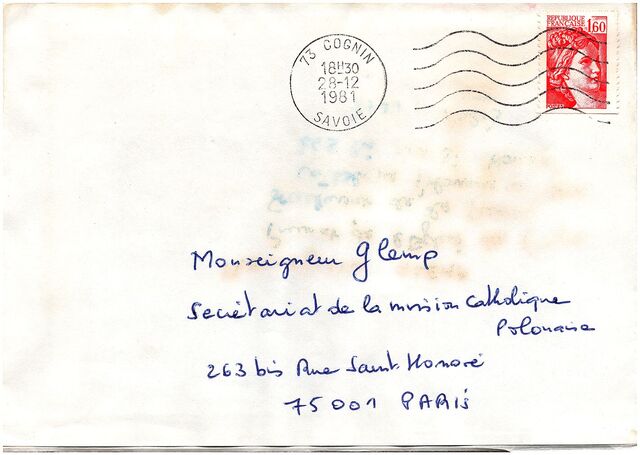 RÉPUBLIQUE
FRANÇAISE
1,60
73 COGNIN
18H30
28-12
1981
SAVOIE
Monseigneur Glemp
Secrétariat de la mission Catholique
Polonaise
263 bis Rue Saint-Honoré
75001 PARIS